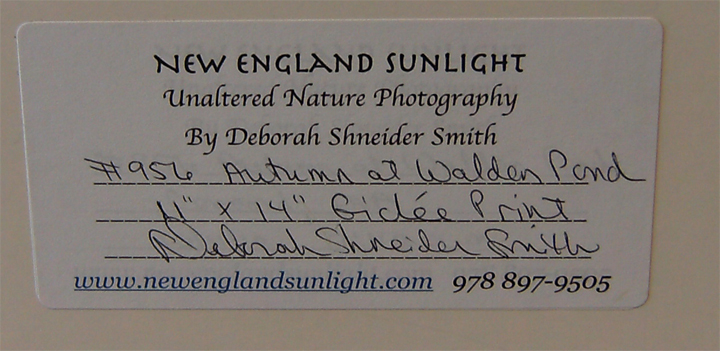 NEW ENGLAND SUNLIGHT
Unaltered Nature Photography
By Deborah Shneider Smith
#956 Autumn at Walden Pond
11" x 14" Giclée Print
Deborah Shneider Smith
www.newenglandsunlight.com 978 897-9505